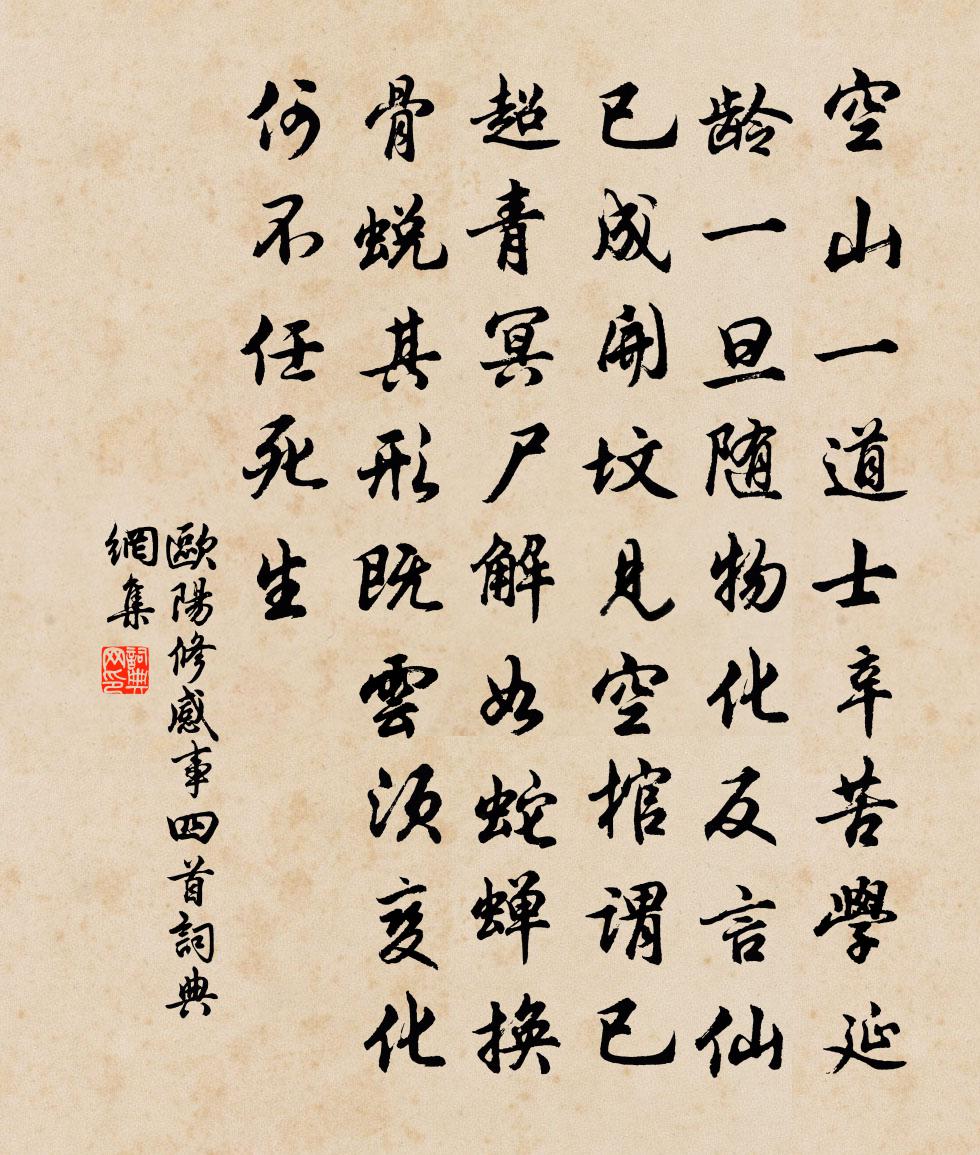 空山一道士辛苦學延
龄一旦随物化反言仙
已成開坟見空棺謂已
超青冥尸解如蛇蝉換
骨蜕其形既雲須变化
何不任死生
歐陽修感事四首詞典
網集
詞典
网印